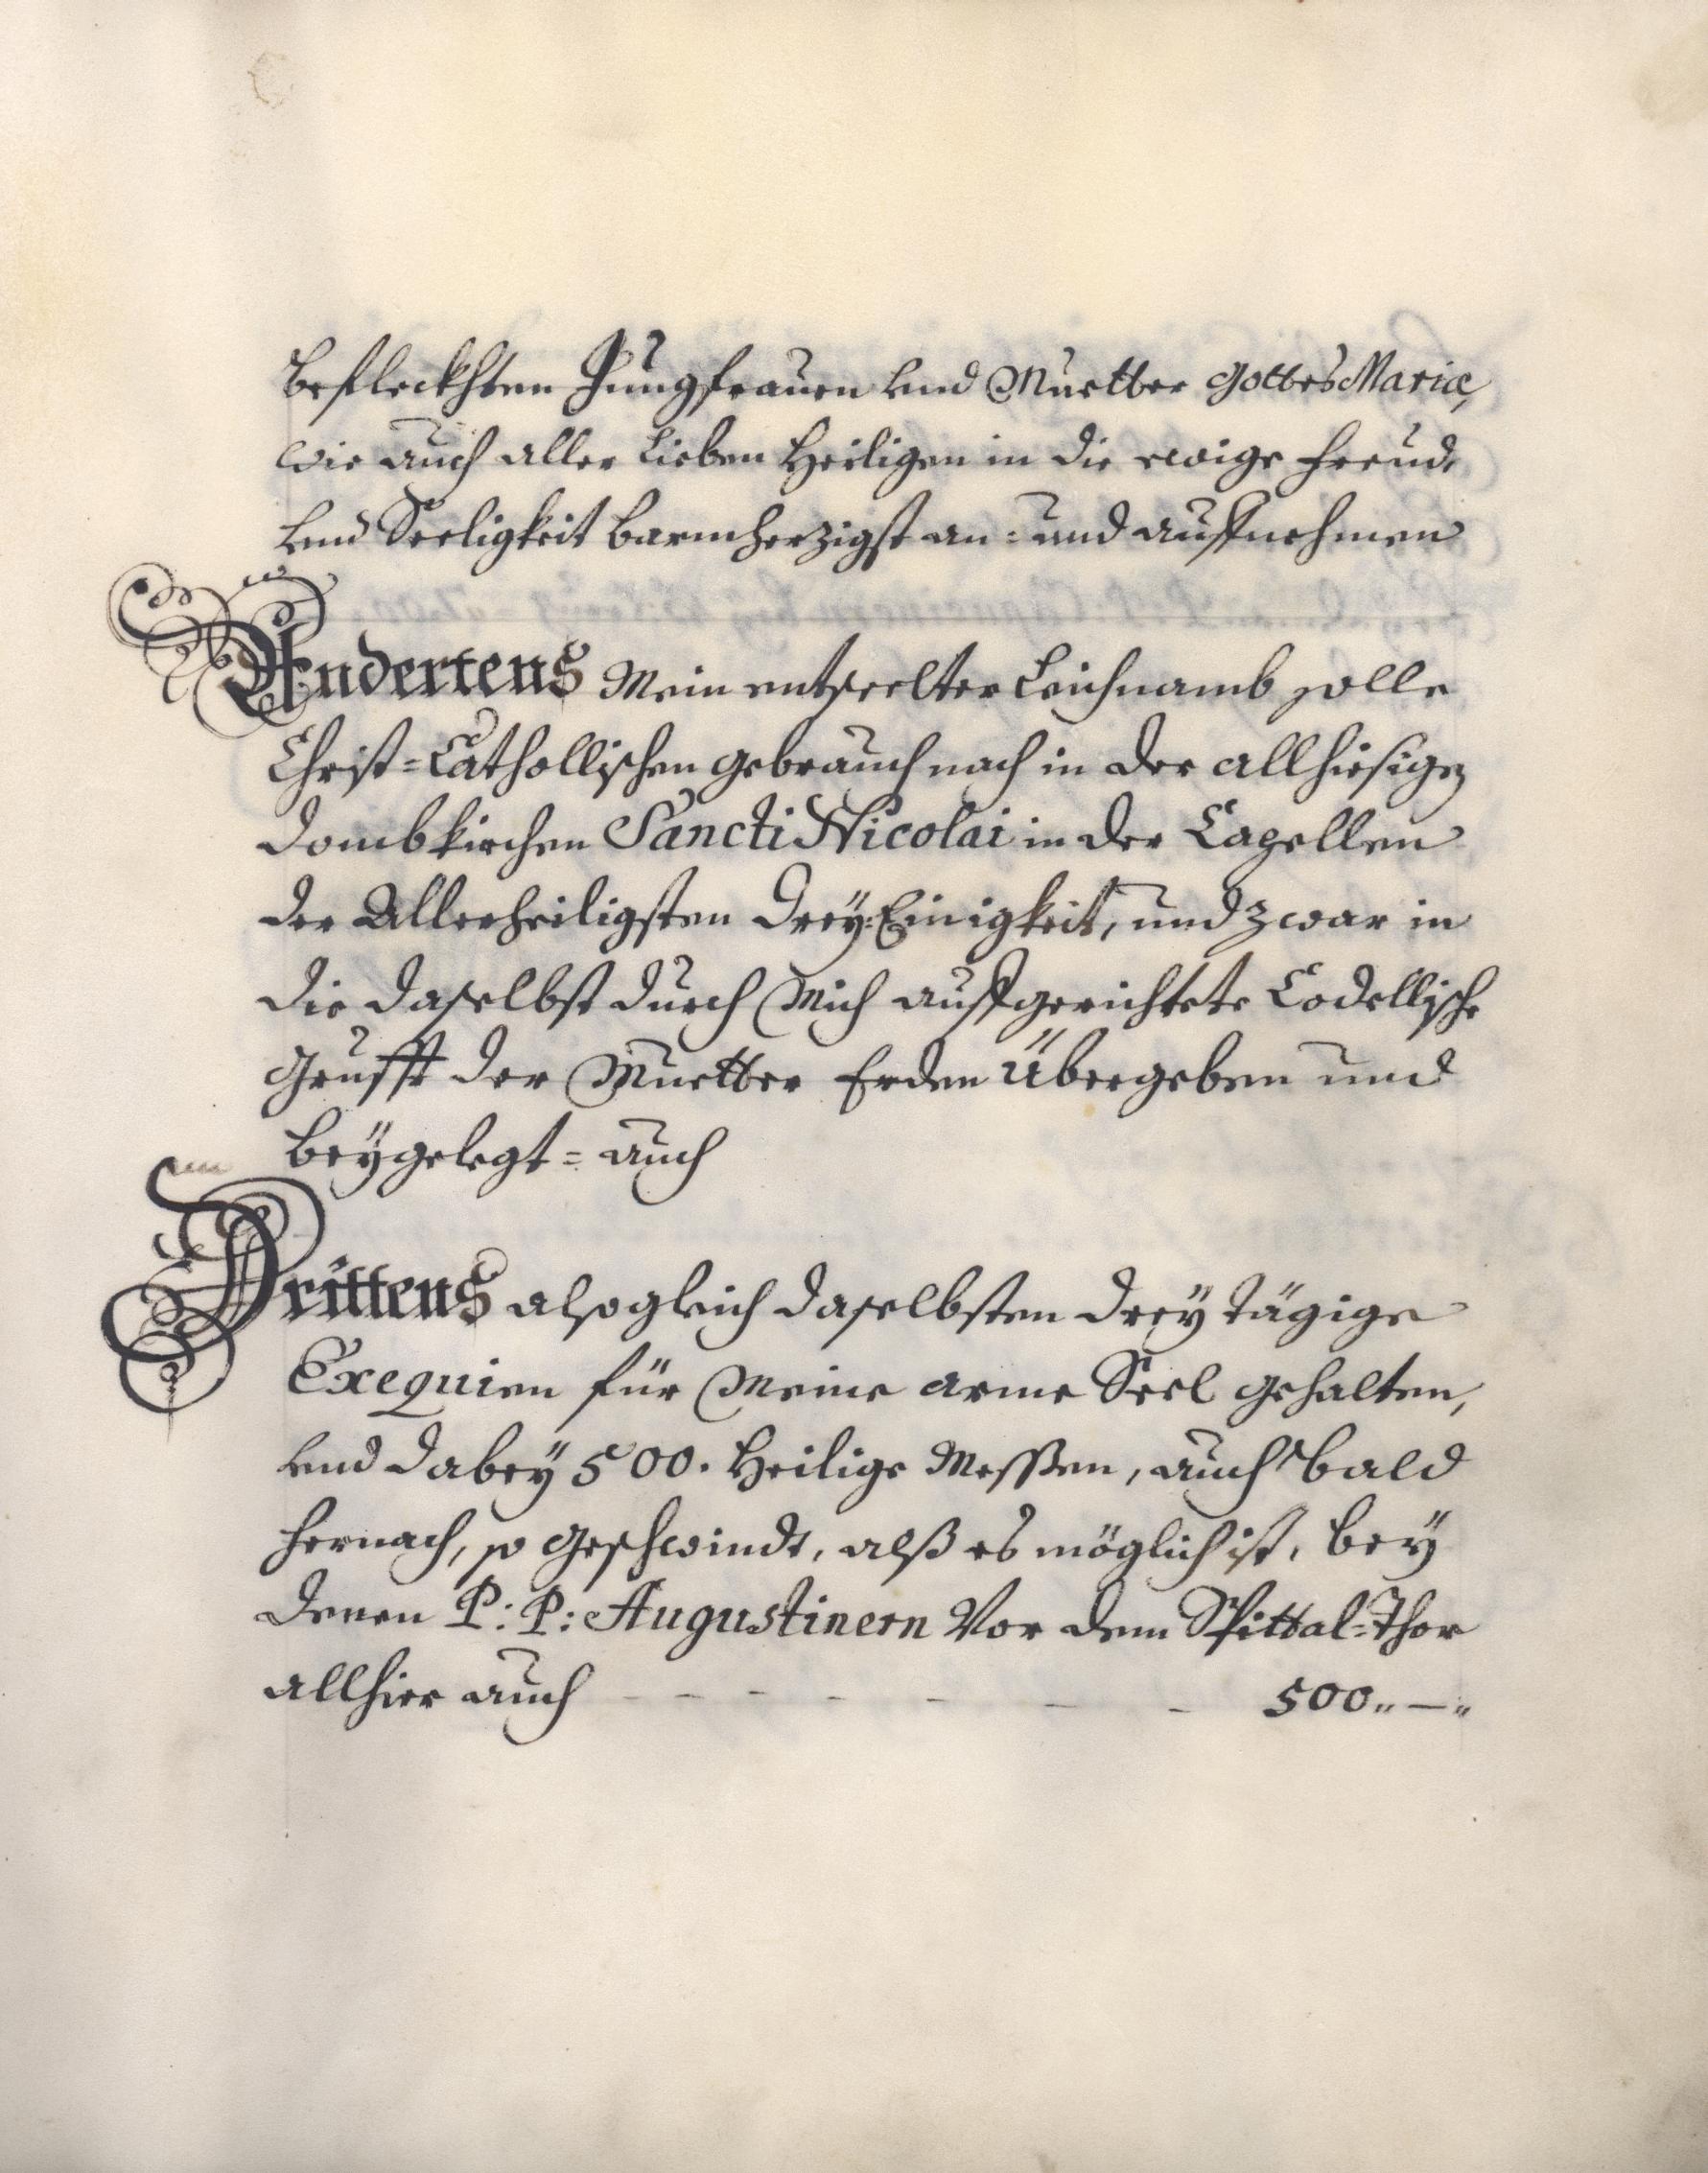 befleckhten Jungfrauen und Muetter Gottes Mariæ,
wie auch aller Lieben Heiligen in die ewige Freud,
und Seeligkeit barmherzigst an= und auffnehmen
Andertens Mein entseelter Leichnamb solle
Christ=Cathollischen gebrauch nach in der allhiesigen
Dombkirchen Sancti Nicolai in der Capellen
der Allerheiligsten Drey=Einigkeit, und zwar in
die daselbst durch Mich auffgerichtete Codellische
Grufft der Muetter Erden Übergeben und
beygelegt= auch
Drittens alsogleich daselbsten drey tägige
Exequien für Meine arme Seel gehalten,
und dabey 500. Heilige Messen, auch bald
hernach, so geschwindt, alß es möglich ist, bey
denen P: P: Augustinern Vor dem Spittal=Thor
allhier auch - - - - - - - 500„ —„